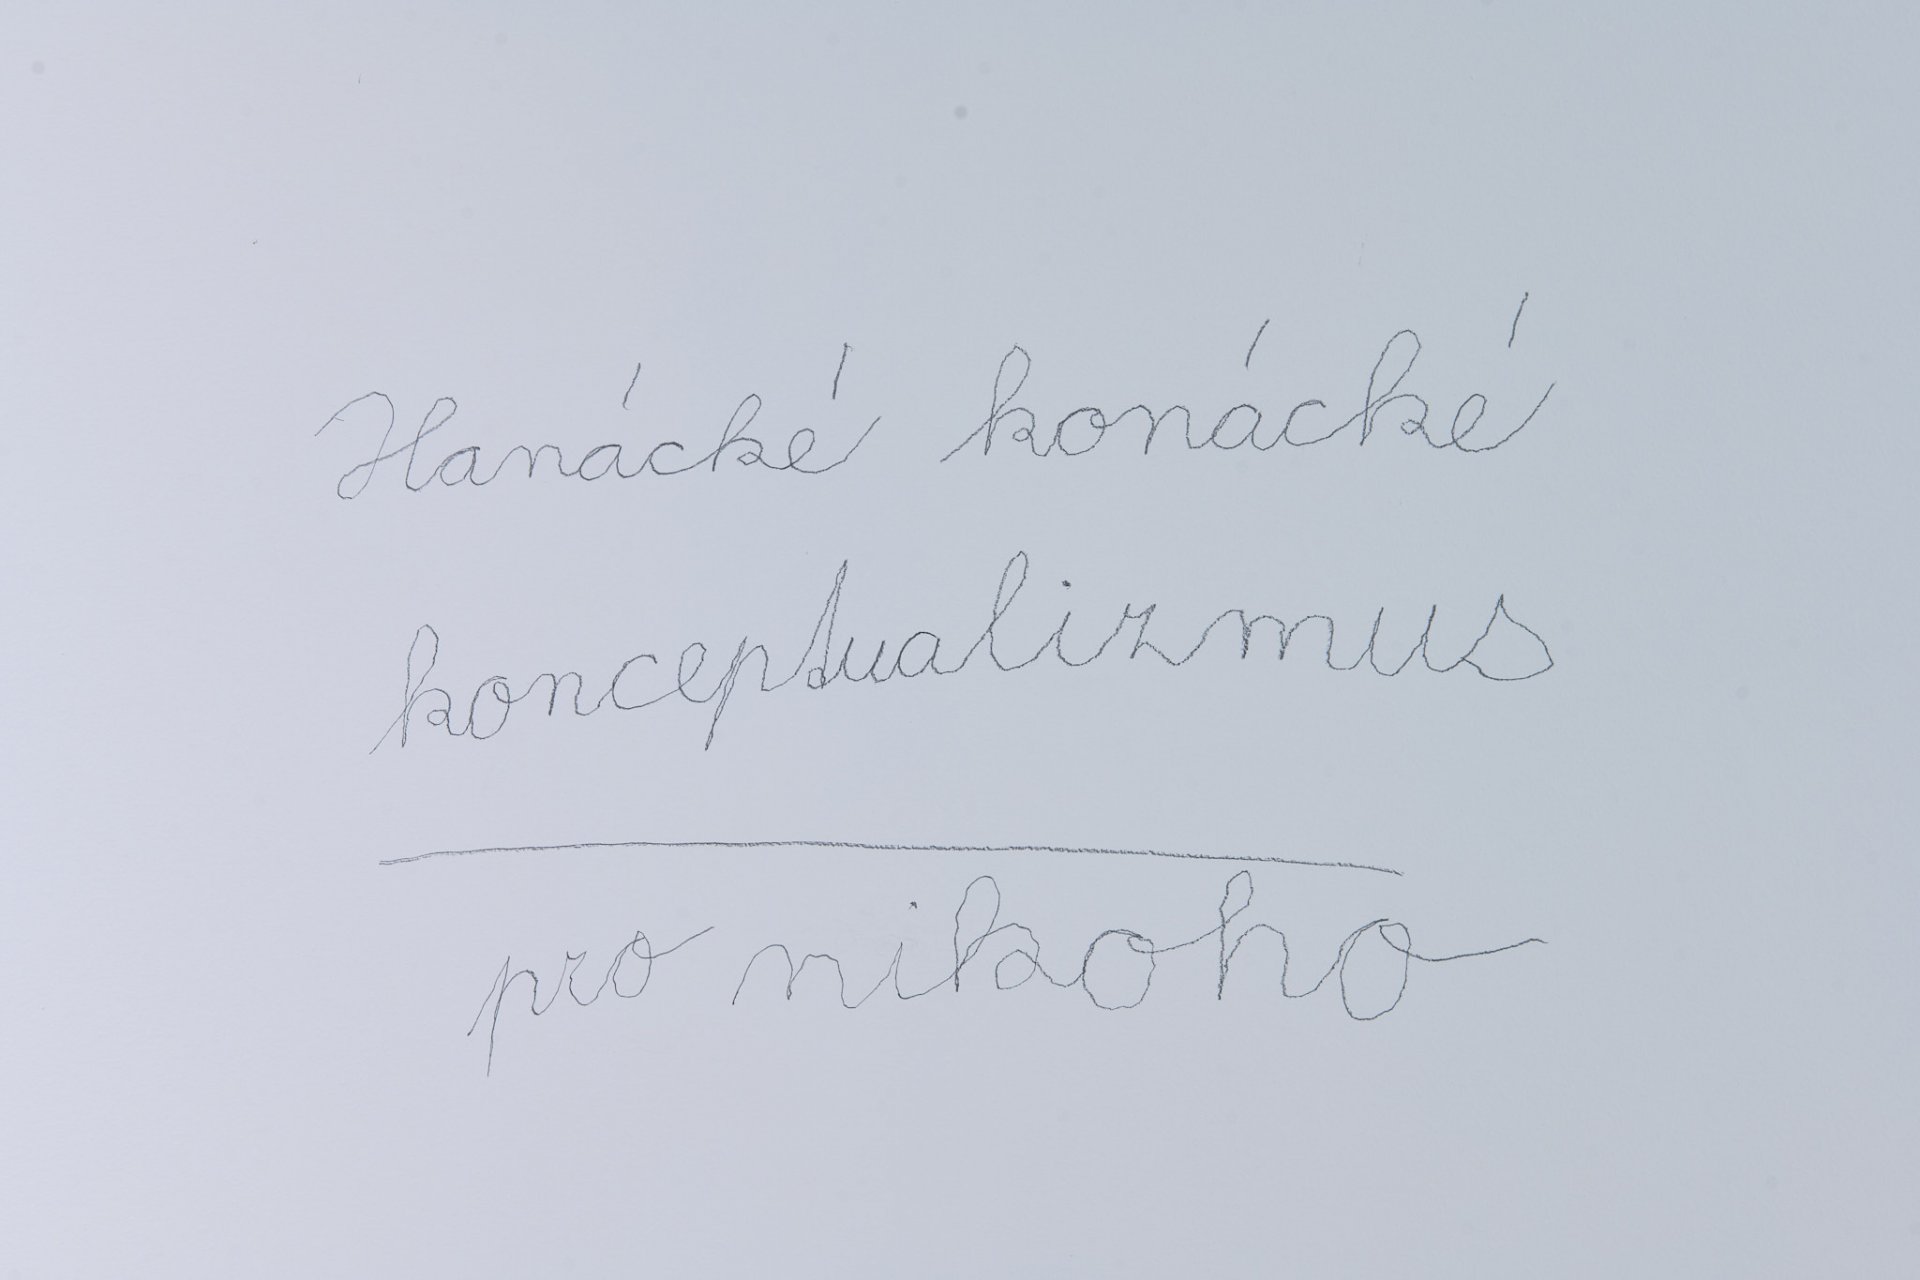 Hanácké konácké
konceptualizmus
pro nikoho